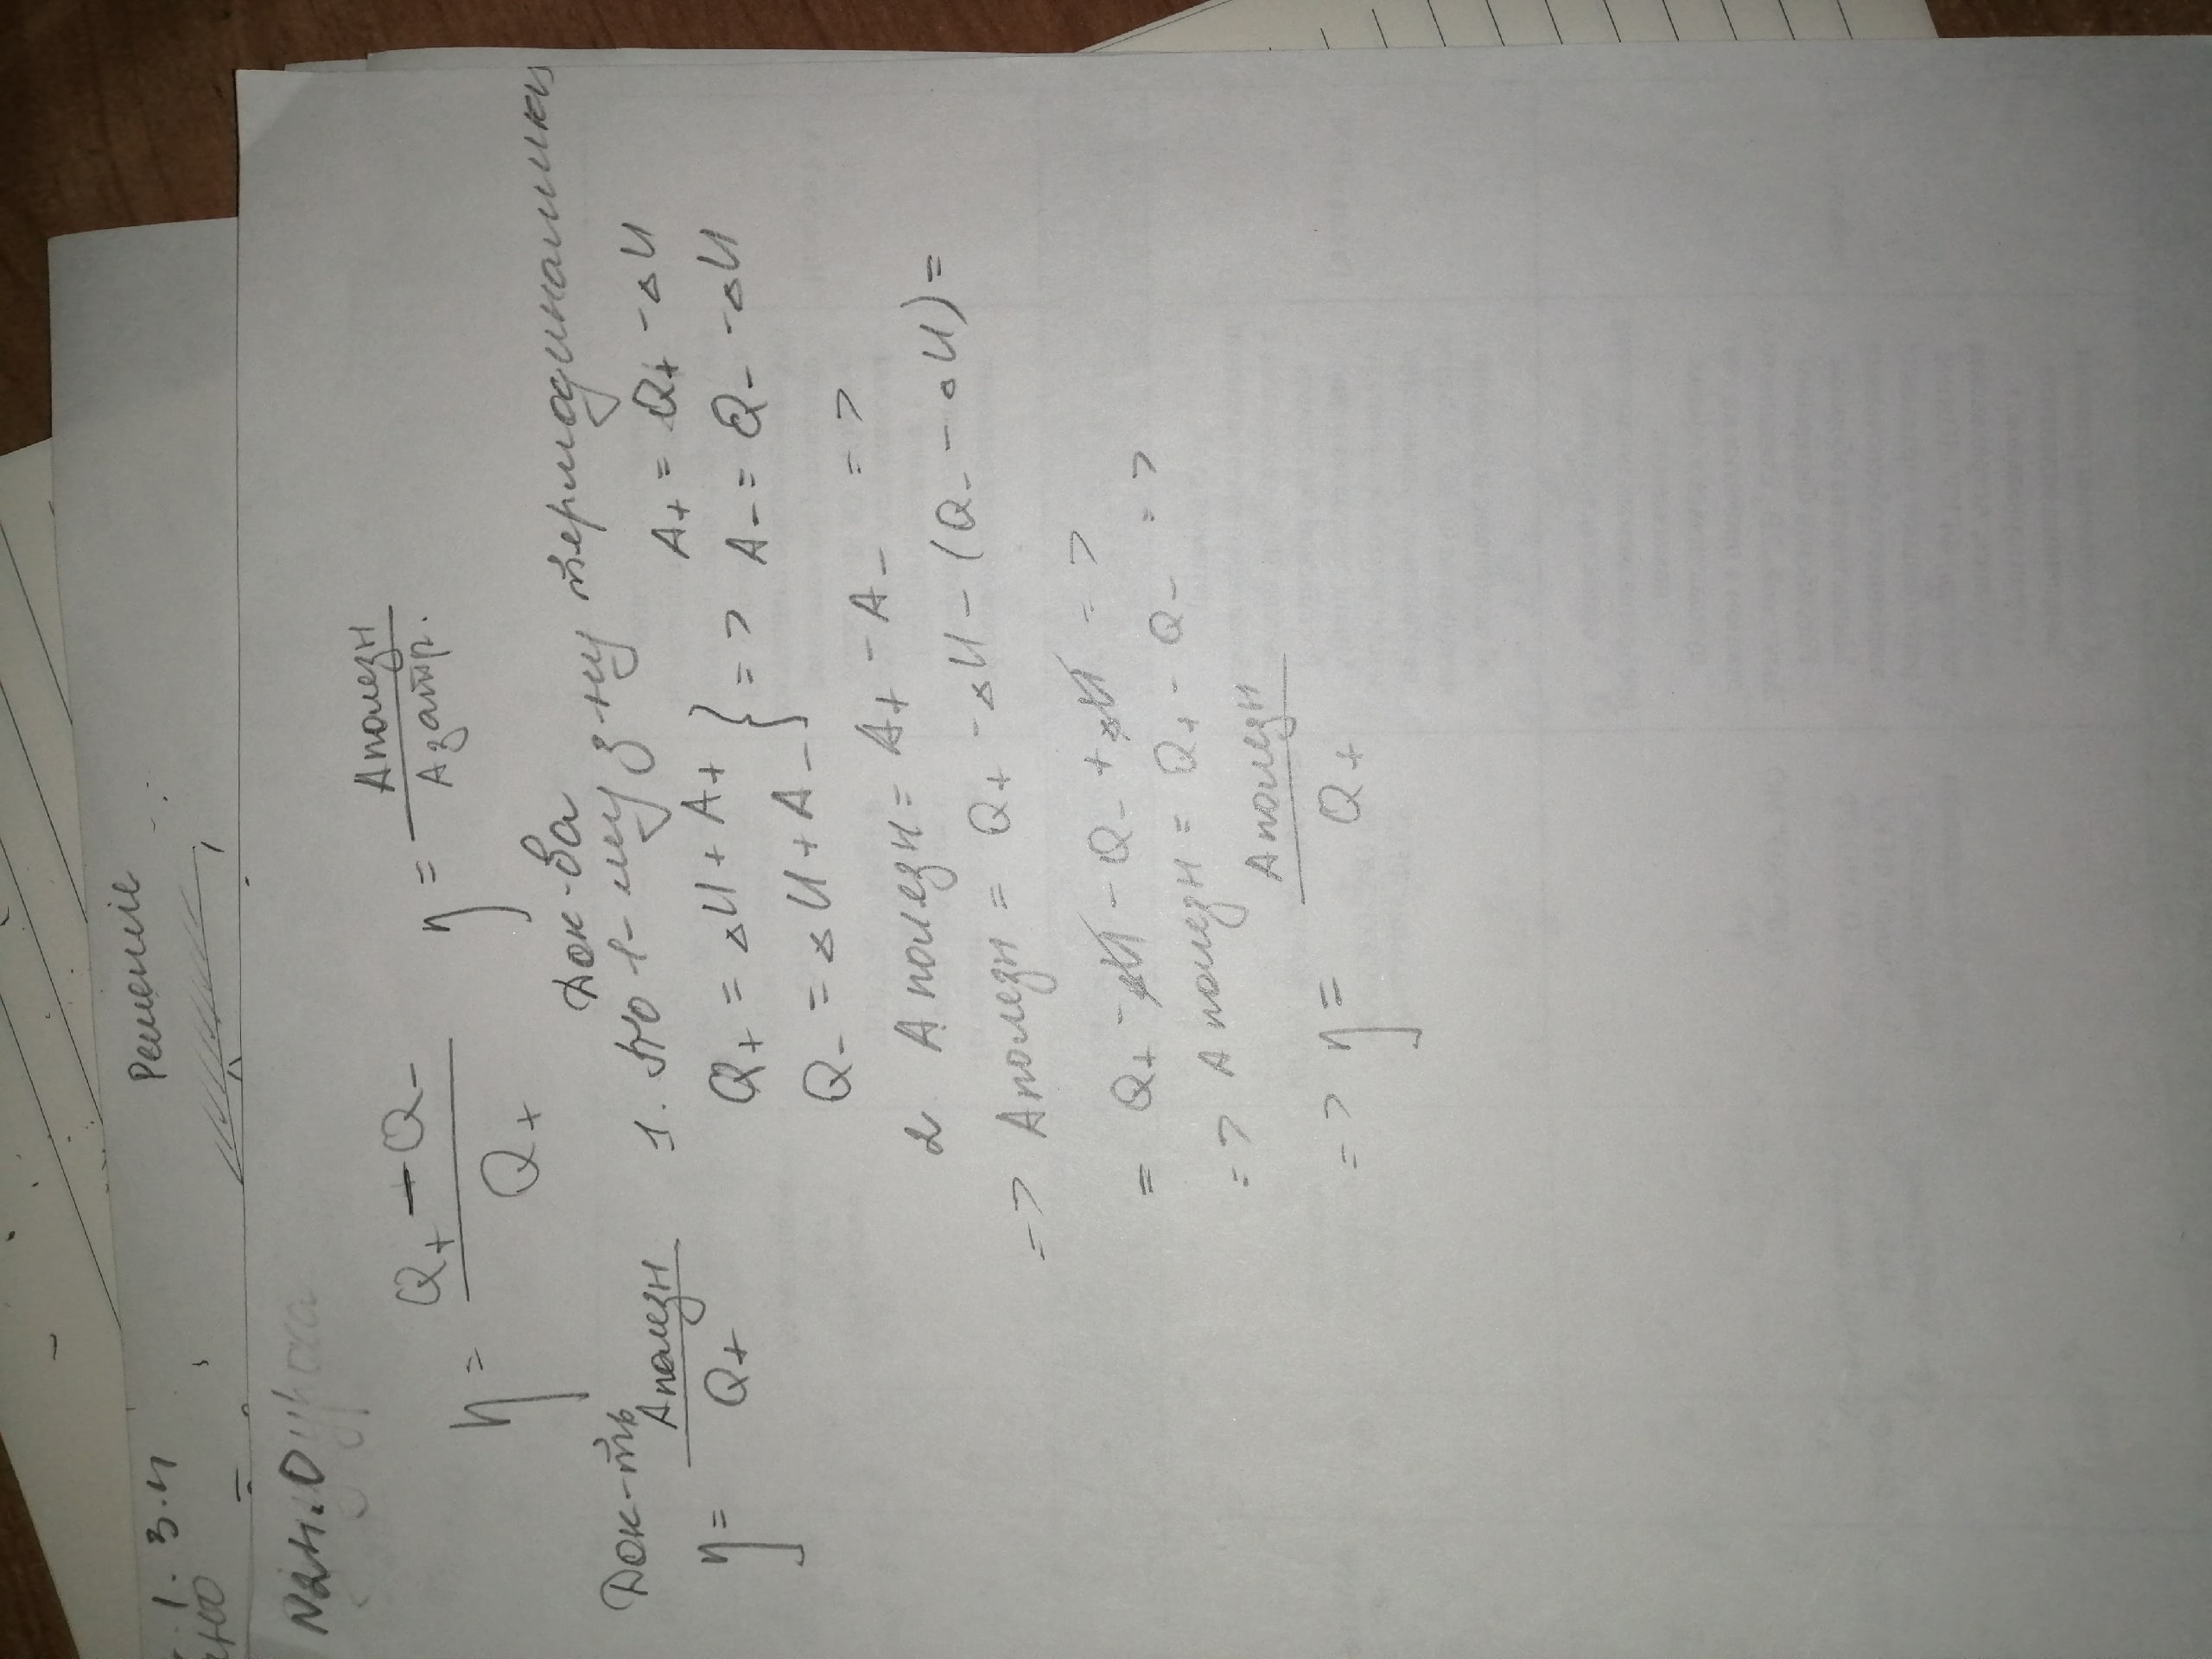 1. 3.4 Решение
η = Q₊ - Q₋ / Q₊ η = Aполезн / Aзатр.
Док-ть Док-ва
η = Aполезн / Q₊
1. По 1-му з-ну термодинамики
Q₊ = ΔU + A₊ } => A₊ = Q₊ - ΔU
Q₋ = ΔU + A₋ } => A₋ = Q₋ - ΔU
2 Aполезн = A₊ - A₋ =>
=> Aполезн = Q₊ - ΔU - (Q₋ - ΔU) =
= Q₊ - ΔU - Q₋ + ΔU =>
=> Aполезн = Q₊ - Q₋ =>
=> η = Aполезн / Q₊